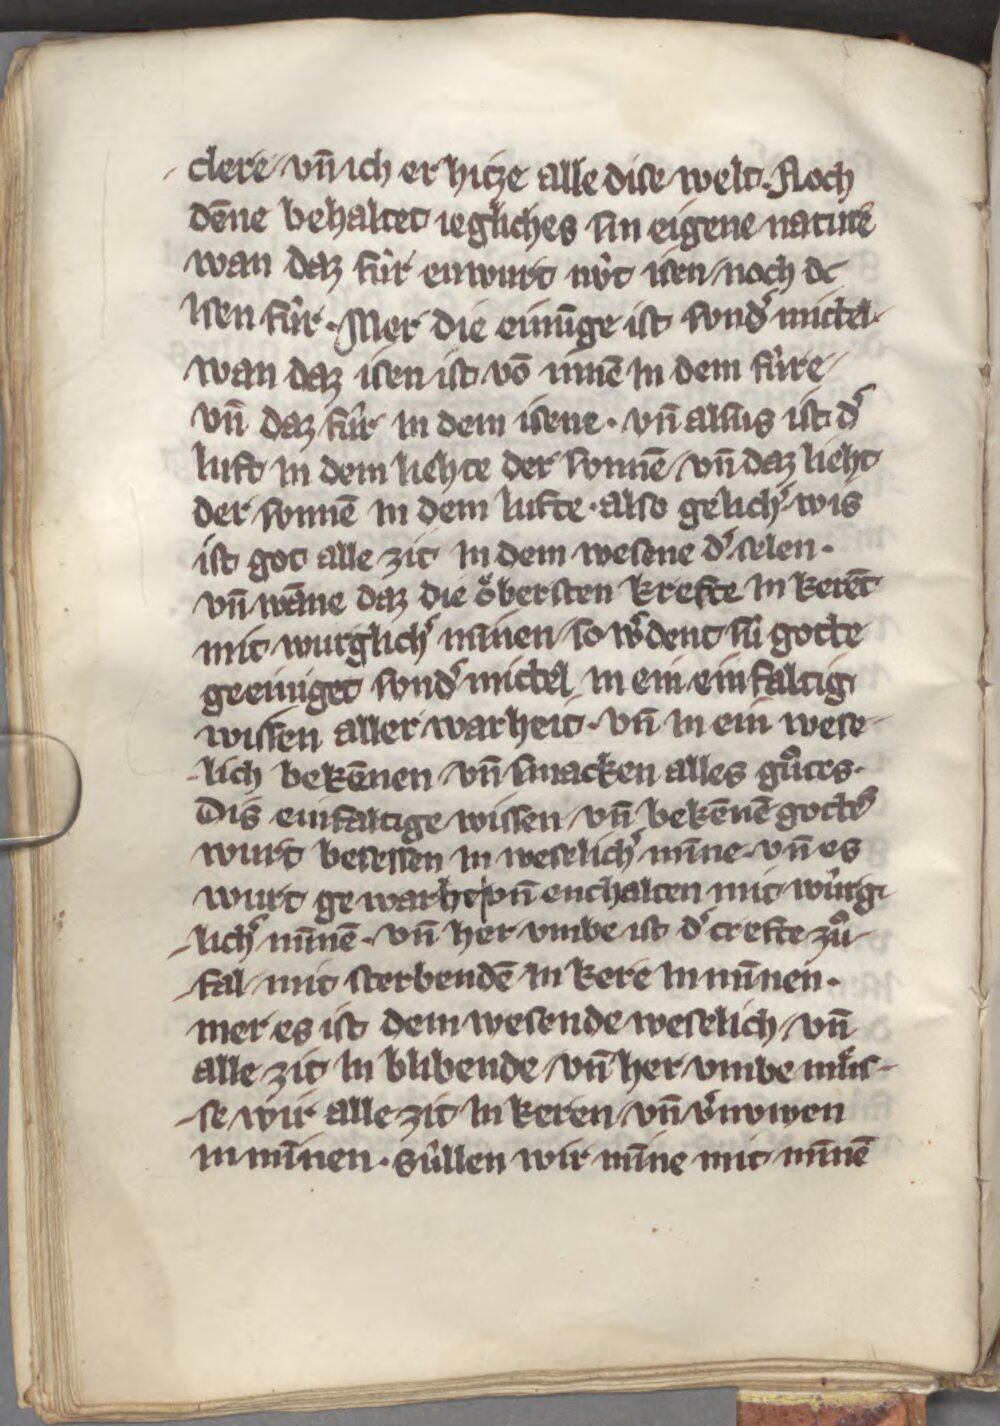 clere vn̄ ich er hitze alle dise welt. Noch
dēne behaltet iegliches sin eigene nature
wan daz fúr enwurt nv́t isen noch dc
isen fúr. Mer die einūge ist sond̾ mittel.
wan daz isen ist vō innē in dem fúre
vn̄ daz fúr in dem isene. vn̄ alsus ist d̾
luft in dem liehte der sonnē vn̄ daz lieht
der sonnē in dem lufte. also gelich̾ wis
ist got alle zit in dem wesene d̾ selen.
vn̄ wāne daz die oͤbersten krefte in kerēt
mit wurglich̾ minnen so w̾dent sú gotte
geeiniget sond̾ mittel in ein einfaltig
wissen aller warheit. vn̄ in ein wese-
-lich bekēnen vn̄ smacken alles guͦtes.
Dis einfaltige wissen vn̄ bekēnē gottes
wurt besessen in weselich̾ mīne. vn̄ es
wurt ge war vn̄ enthalten mit wúrg-
-lich̾ mīnē. vn̄ her vmbe ist d̾ crefte zuͦ-
-fal mit sterbendē in kere in mīnen.
mer es ist dem wesende weselich vn̄
alle zit in blibende vn̄ her vmbe mús-
-se wir alle zit in keren vn̄ v̾nvwen
in mīnen. súllen wir mīne mit mīnē